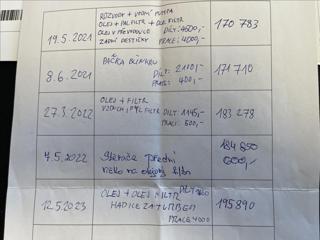 ROZVODY + VODNÍ PUMPA
OLEJ + PAL FILTR + OLE. FILTR
19.5.2021 OLEJ V PŘEVODOVCE DÍLY: 4500,- 170 783
ZADNÍ DESTIČKY PRÁCE: 4000,-
PAČKA BLINKRU
8.6.2021 DÍLY: 2100,- 171 710
PRÁCE: 400,-
OLEJ + FILTR
27.3.2022 VZDUCH, PYL FILTR DÍLY: 1145,- 183 278
PRÁCE: 500,-
184 850
7.5.2022 Stěrače přední 600,-
víčko na olejový filtr
OLEJ + OLEJ. FILTR
12.5.2023 HADICE ZA TURBEM 195890
PRÁCE 4000